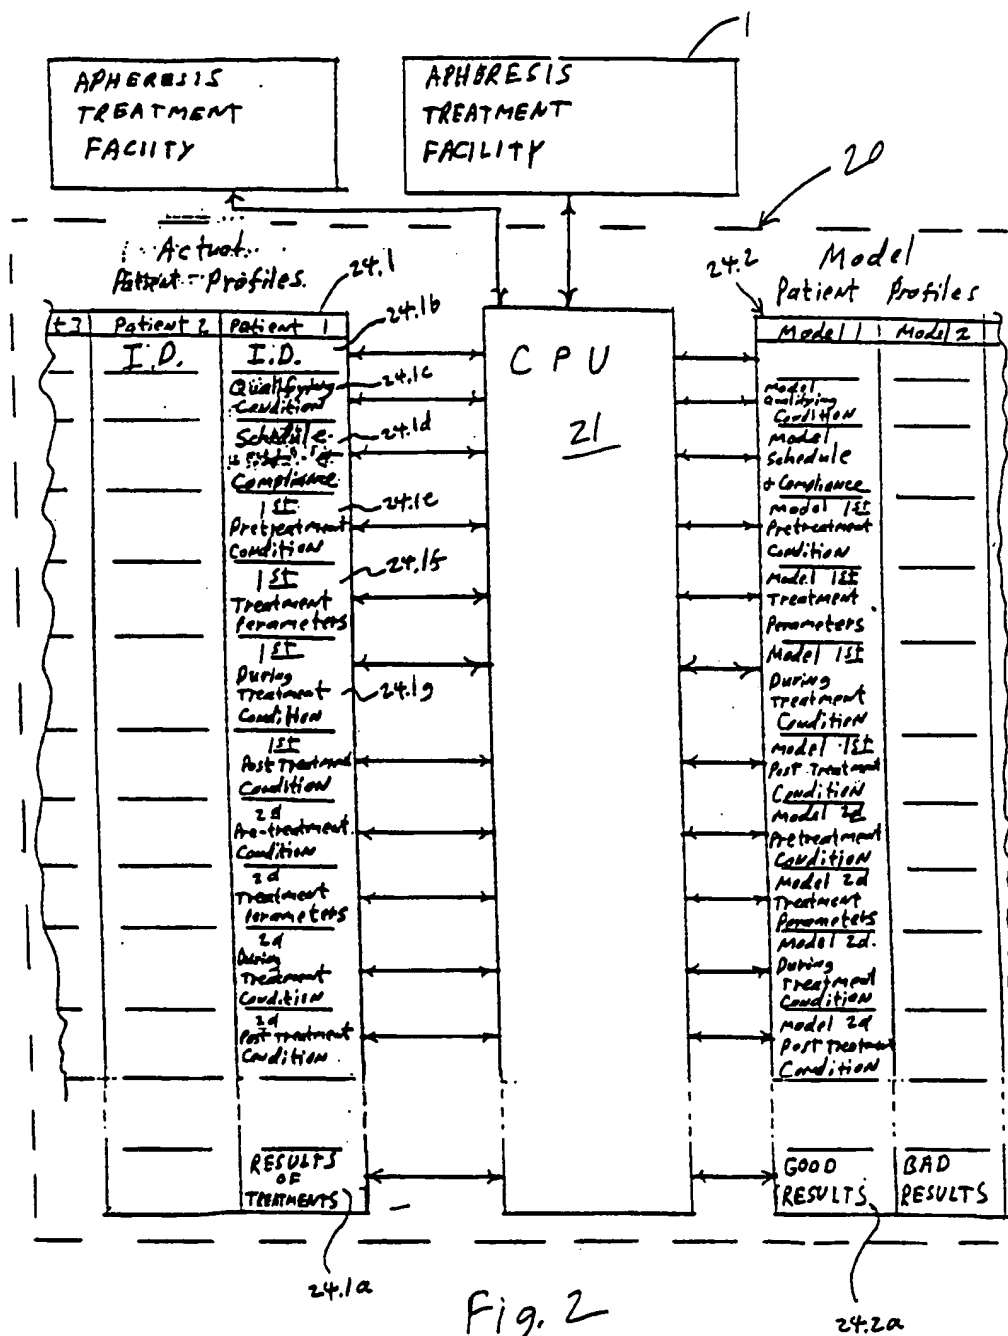 1
APHERESIS
TREATMENT
FACIITY
APHERESIS
TREATMENT
FACILITY
20
Actual
Patient Profiles
24.1
24.2
Model
Patient Profiles
t 3
Patient 2
Patient 1
24.1b
I.D.
I.D.
Qualifying
Condition
24.1c
Schedule
24.1d
Compliance
1st
24.1e
Pretreatment
Condition
1st
24.1f
Treatment
Perameters
1st
During
Treatment
24.1g
Condition
1st
Post Treatment
Condition
2d
Pre-treatment
Condition
2d
Treatment
Perameters
2d
During
Treatment
Condition
2d
Post Treatment
Condition
RESULTS
OF
TREATMENTS
24.1a
CPU
21
Model 1
Model 2
Model
Qualifying
Condition
Model
Schedule
+ Compliance
Model 1st
Pretreatment
Condition
Model 1st
Treatment
Perameters
Model 1st
During
Treatment
Condition
Model 1st
Post Treatment
Condition
Model 2d
Pretreatment
Condition
Model 2d
Treatment
Perameters
Model 2d
During
Treatment
Condition
Model 2d
Post Treatment
Condition
GOOD
RESULTS
BAD
RESULTS
24.2a
Fig. 2